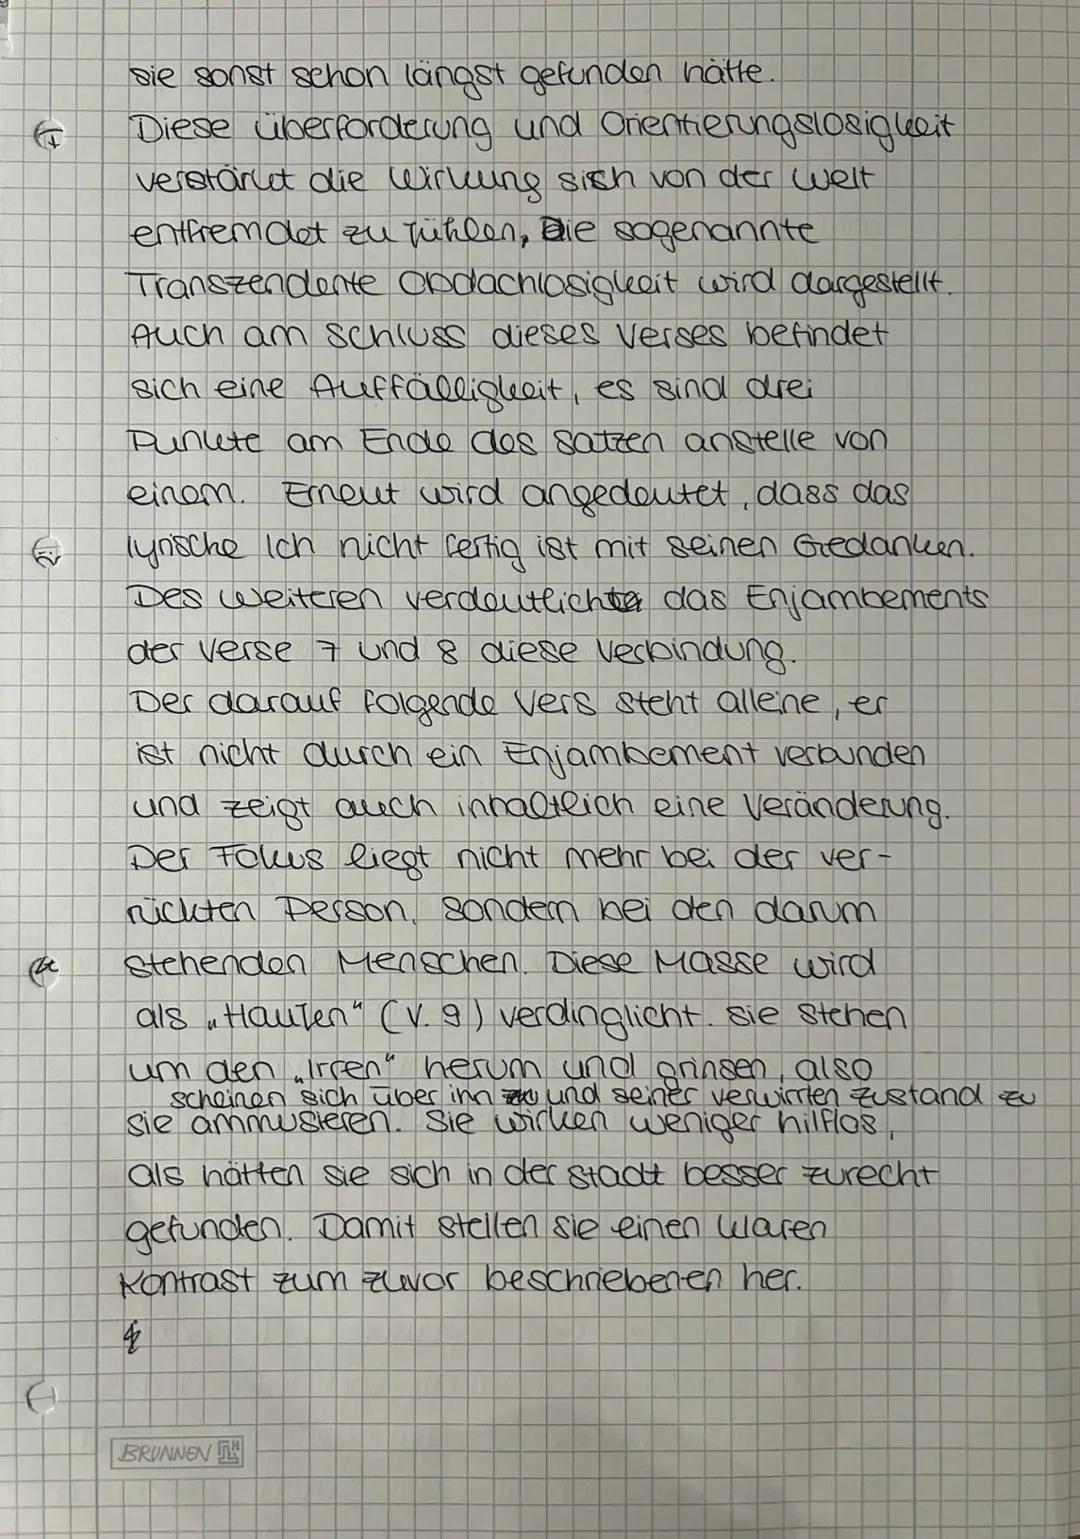 sie sonst schon längst gefunden hätte.
Diese überforderung und Orientierungslosigkeit
verstärkt die Wirkung sich von der Welt
entfremdet zu fühlen, Die sogenannte
Transzendente Obdachlosigkeit wird dargestellt.
Auch am Schluss dieses Verses befindet
sich eine Auffälligkeit, es sind drei
Punkte am Ende des Satzen anstelle von
einem. Erneut wird angedeutet, dass das
lyrische Ich nicht fertig ist mit seinen Gedanken.
Des weiteren verdeutlicht das Enjambements
der Verse 7 und 8 diese Verbindung.
Der darauf folgende Vers steht alleine, er
ist nicht durch ein Enjambement verbunden
und zeigt auch inhaltlich eine Veränderung.
Der Fokus liegt nicht mehr bei der ver-
rückten Person, sondern bei den darum
stehenden Menschen. Diese Masse wird
als „Haufen“ (V. 9) verdinglicht. Sie stehen
um den „Irren“ herum und grinsen, also
scheinen sich über ihn und seiner verwirrten Zustand zu
sie ammusieren. Sie wirken weniger hilflos,
als hätten sie sich in der Stadt besser zurecht
gefunden. Damit stellen sie einen klaren
Kontrast zum zuvor beschriebenen her.
BRUNNEN